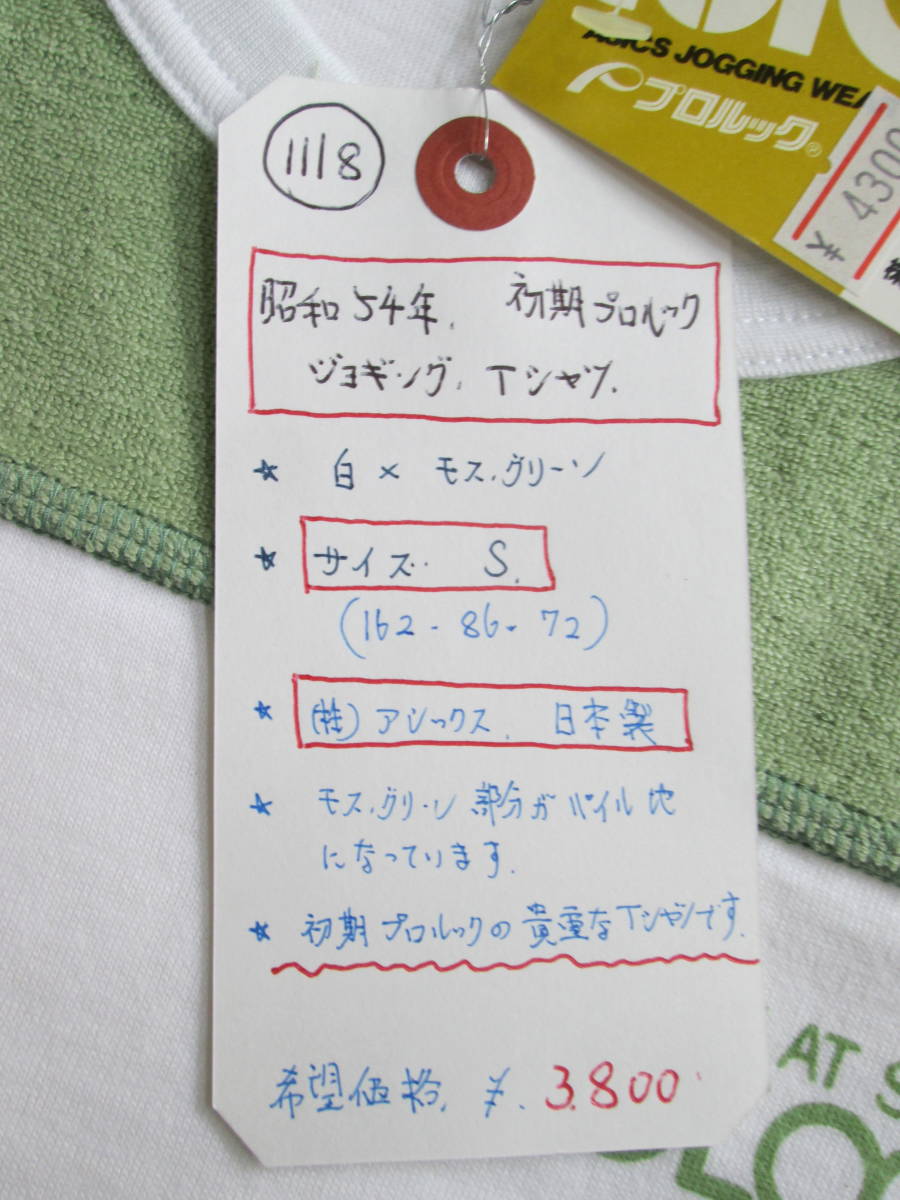 ASICS JOGGING WEA
プロルック®
¥ 4300
1118
昭和54年. 初期プロルック
ジョギング. Tシャツ.
★ 白 × モス.グリーン
★ サイズ. S.
(162-86-72)
★ (株)アシックス. 日本製
★ モス.グリーン部分がパイル地
になっています.
★ 初期プロルックの貴重なTシャツです.
希望価格. ¥. 3.800
AT S